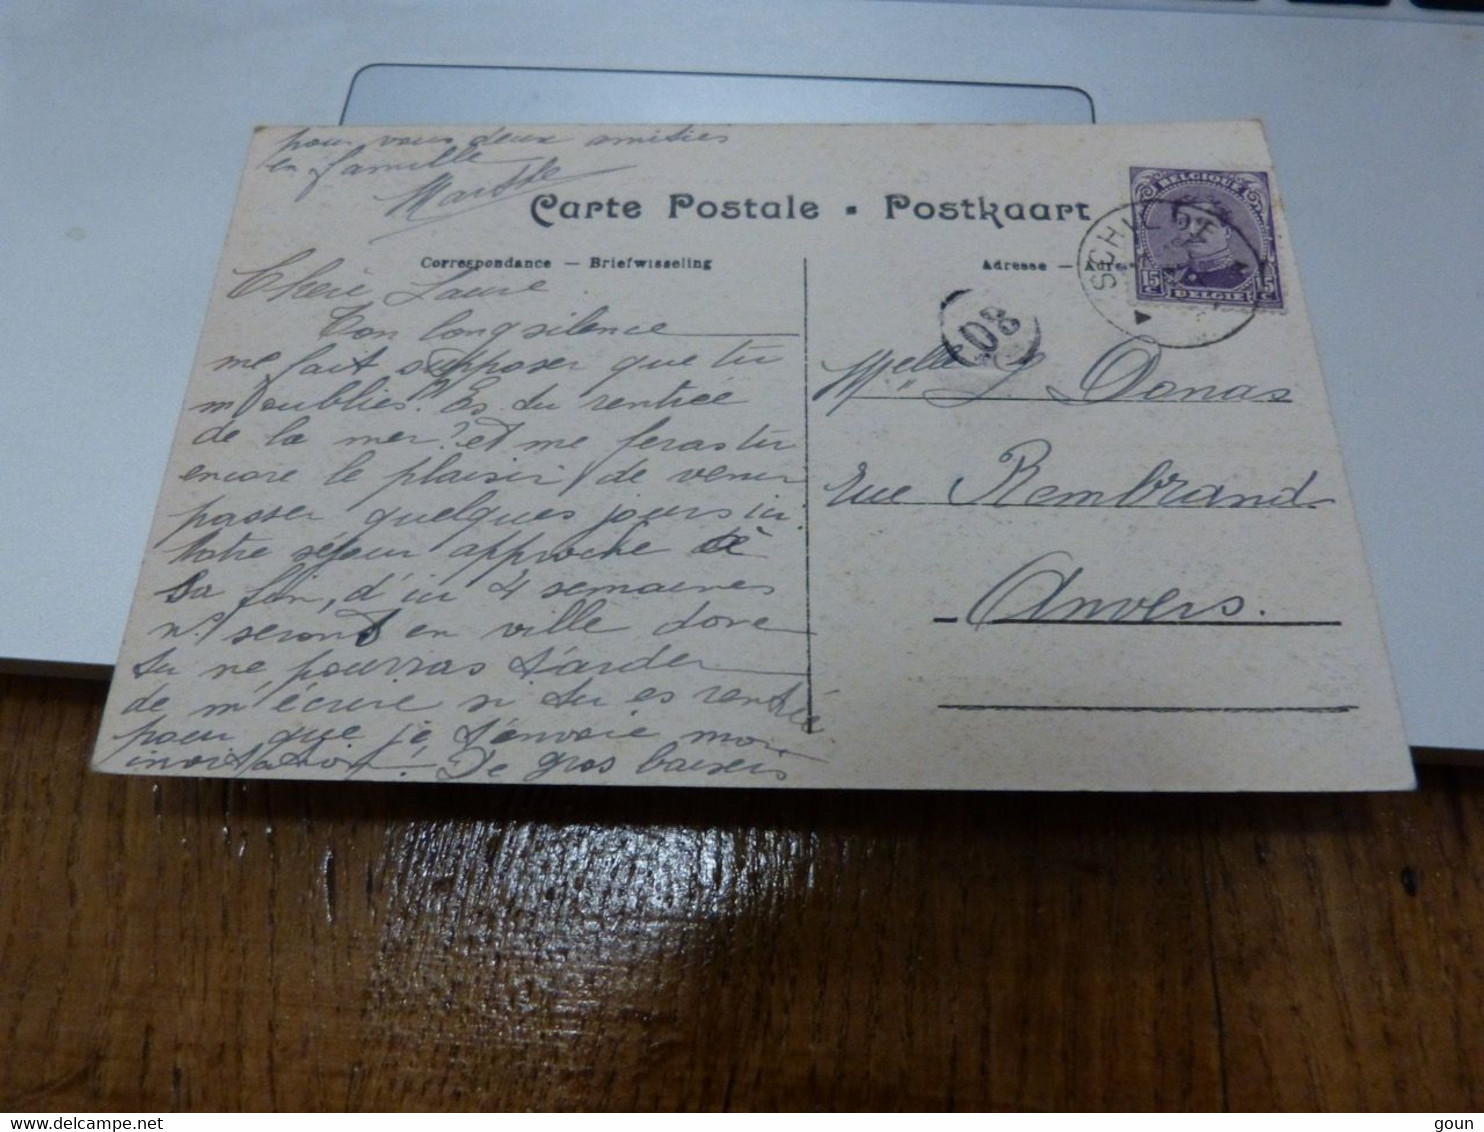 pour vous deux amitiés
en famille
Marthe
Carte Postale - Postkaart
Correspondance — Briefwisseling
Adresse — Adres
BELGIQUE
15 c
15 c
BELGIE
SCHILDE
08
Chère Laure
Ton long silence
me fait supposer que tu
m'oublies. Es du rentrée
de la mer? et me feras tu
encore le plaisir de venir
passer quelques jours ici.
Notre séjour approche de
sa fin, d'ici 4 semaines
n. serons en ville donc
tu ne pourras tarder
de m'écrire si tu es rentrée
pour que je t'envoie mon
invitation! De gros baisers
Melle L. Donas
rue Rembrand
Anvers.
goun